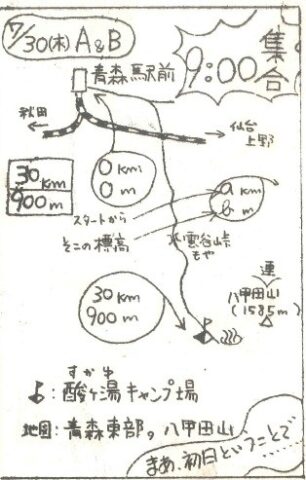 7/30(木) A&B
9:00 集合
青森駅前
秋田
仙台
上野
30km
900m
0km
0m
akm
bm
スタートから
そこの標高
雲谷峠
もや
30km
900m
連
八甲田山
(1585m)
すかゆ
:酸ヶ湯キャンプ場
地図:青森東部,八甲田山
まあ、初日ということで